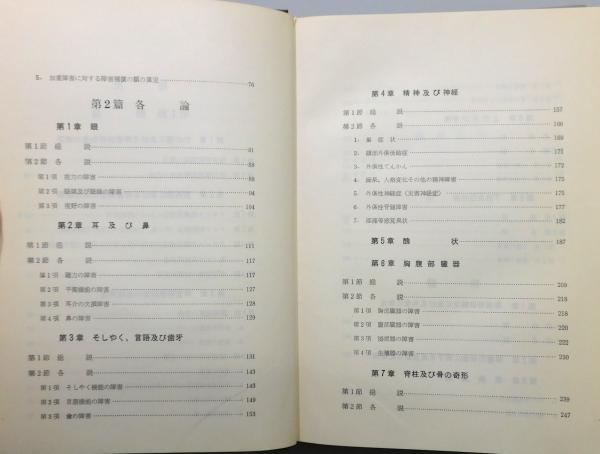 5. 加重障害に対する障害補償の額の算定 76
第2篇 各 論
第1章 眼
第1節 総 説 81
第2節 各 説 88
第1項 視力の障害 88
第2項 眼球及び眼瞼の障害 94
第3項 視野の障害 104
第2章 耳 及 び 鼻
第1節 総 説 111
第2節 各 説 117
第1項 聴力の障害 117
第2項 平衡機能の障害 127
第3項 耳介の欠損障害 128
第4項 鼻の障害 129
第3章 そしやく、言語及び歯牙
第1節 総 説 131
第2節 各 説 143
第1項 そしやく機能の障害 143
第2項 言語機能の障害 149
第3項 歯の障害 153
第4章 精神及び神経
第1節 総 説 157
第2節 各 説 166
1. 巣症状 169
2. 頭部外傷後胎症 171
3. 外傷性てんかん 172
4. 痴呆、人格変化その他の精神障害 175
5. 外傷性神経症(災害神経症) 175
6. 外傷性脊髄障害 177
7. 疼痛等感覚異状 182
第5章 醜 状 187
第6章 胸腹部臓器
第1節 総 説 209
第2節 各 説 218
第1項 胸部臓器の障害 218
第2項 腹部臓器の障害 222
第3項 泌尿器の障害
第4項 生殖器の障害 230
第7章 脊柱及び骨の奇形
第1節 総 説 239
第2節 各 説 247